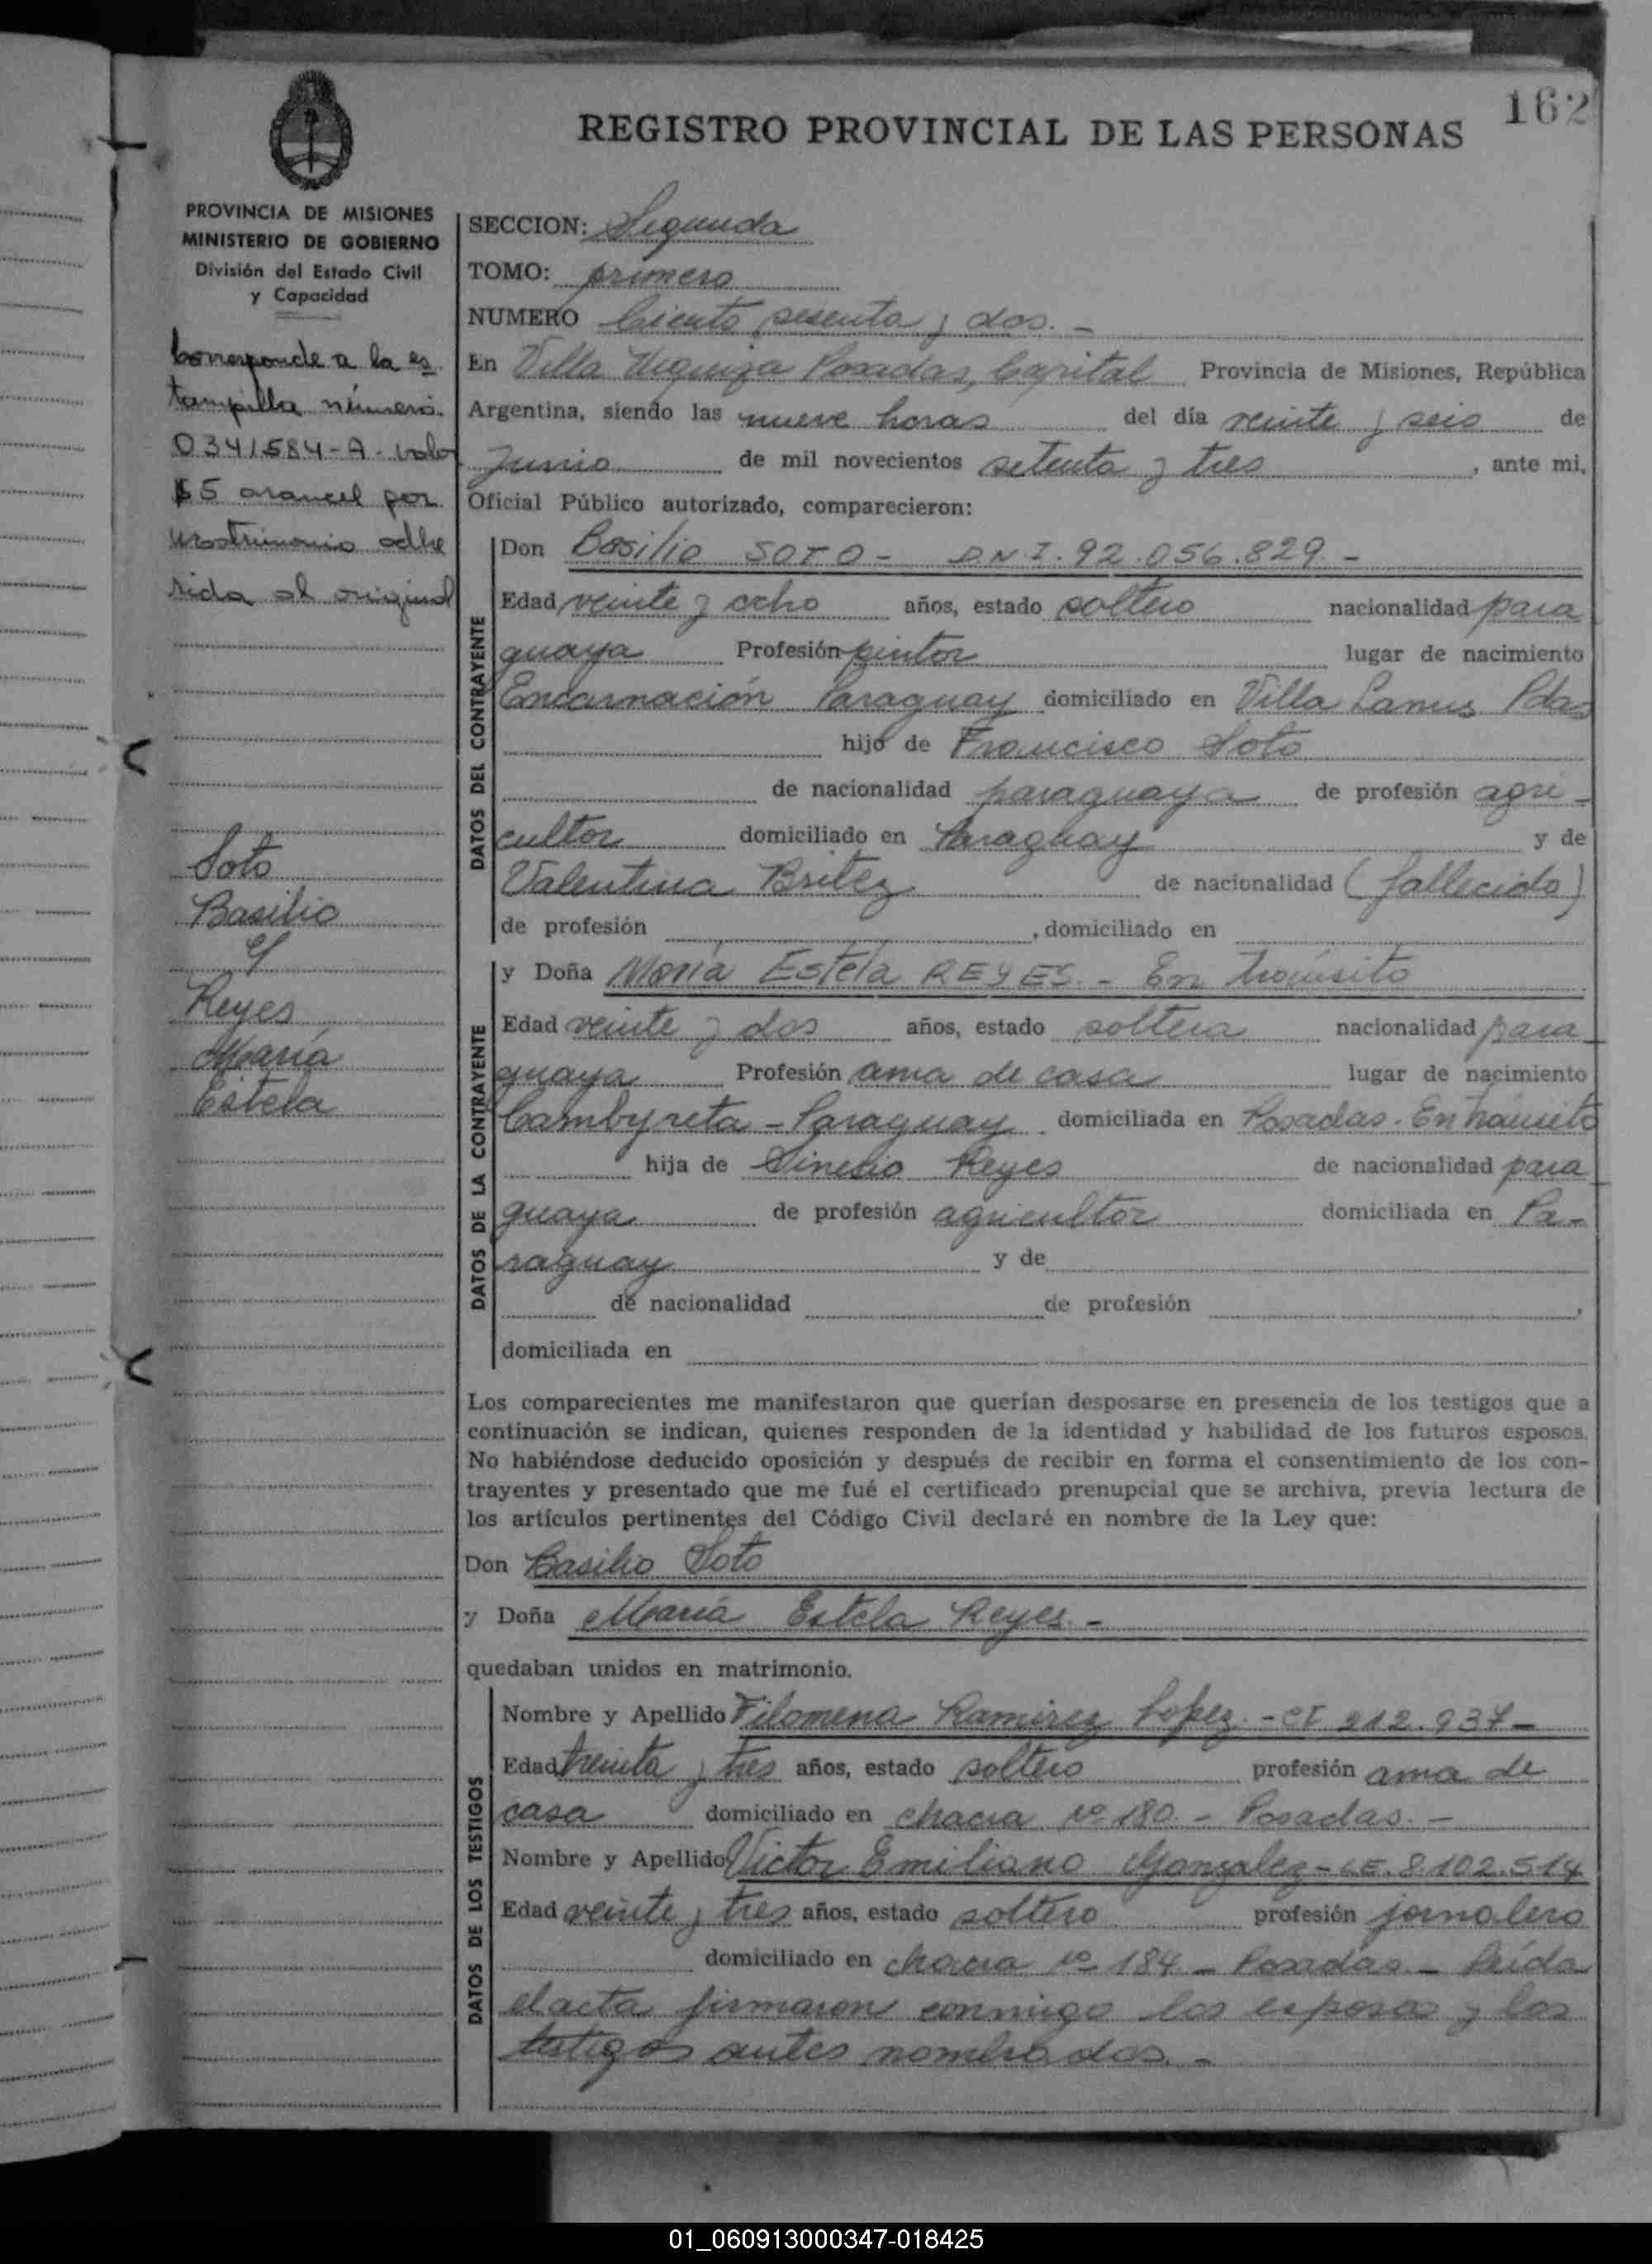 162
REGISTRO PROVINCIAL DE LAS PERSONAS
PROVINCIA DE MISIONES
MINISTERIO DE GOBIERNO
División del Estado Civil
y Capacidad
Corresponde a la es
tampilla número
0341584-A- valor
$5 arancel por
matrimonio adhe
rida al original
Soto
Basilio
y
Reyes
María
Estela
SECCION: Segunda
TOMO: primero
NUMERO Ciento sesenta y dos.-
En Villa Urquiza Posadas, Capital Provincia de Misiones, República
Argentina, siendo las nueve horas del día veinte y seis de
Junio de mil novecientos setenta y tres, ante mi,
Oficial Público autorizado, comparecieron:
DATOS DEL CONTRAYENTE
Don Basilio SOTO- D.N.I. 92.056.829.-
Edad veinte y ocho años, estado soltero nacionalidad para
guaya Profesión pintor lugar de nacimiento
Encarnación Paraguay domiciliado en Villa Lanus Pdas
hijo de Francisco Soto
de nacionalidad paraguaya de profesión agri-
cultor domiciliado en Paraguay y de
Valentina Britez de nacionalidad (fallecido)
de profesión , domiciliado en
DATOS DE LA CONTRAYENTE
y Doña María Estela REYES.- En tránsito
Edad veinte y dos años, estado soltera nacionalidad para
guaya Profesión ama de casa lugar de nacimiento
Cambyreta - Paraguay domiciliada en Posadas. En tránsito
hija de Sinesio Reyes de nacionalidad para
guaya de profesión agricultor domiciliada en Pa-
raguay y de
de nacionalidad de profesión ,
domiciliada en
Los comparecientes me manifestaron que querían desposarse en presencia de los testigos que a
continuación se indican, quienes responden de la identidad y habilidad de los futuros esposos.
No habiéndose deducido oposición y después de recibir en forma el consentimiento de los con-
trayentes y presentado que me fué el certificado prenupcial que se archiva, previa lectura de
los artículos pertinentes del Código Civil declaré en nombre de la Ley que:
Don Basilio Soto
y Doña María Estela Reyes.-
quedaban unidos en matrimonio.
DATOS DE LOS TESTIGOS
Nombre y Apellido Filomena Ramirez Lopez - CI 212.937-
Edad treinta y tres años, estado soltero profesión ama de
casa domiciliado en chacra Nº 180.- Posadas.-
Nombre y Apellido Victor Emiliano Gonzalez - L.E. 8.102.514
Edad veinte y tres años, estado soltero profesión jornalero
domiciliado en chacra Nº 184.- Posadas.- Leída
el acta firmaron conmigo los esposos y los
testigos antes nombrados.-
01_060913000347-018425